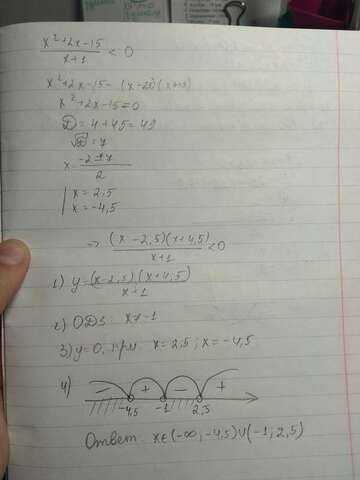 x²+2x-15 / x+1 < 0
x²+2x-15= (x-2,5)(x+4,5)
x²+2x-15=0
D=4+45=49
√D=7
x= -2±7 / 2
x=2,5
x=-4,5
=> (x-2,5)(x+4,5) / x+1 <0
1) y= (x-2,5)(x+4,5) / x+1
2) ОДЗ: x≠-1
3) y=0, при x=2,5; x=-4,5
4) - + - +
-4,5 -1 2,5
Ответ: x∈(-∞;-4,5)∪(-1;2,5)